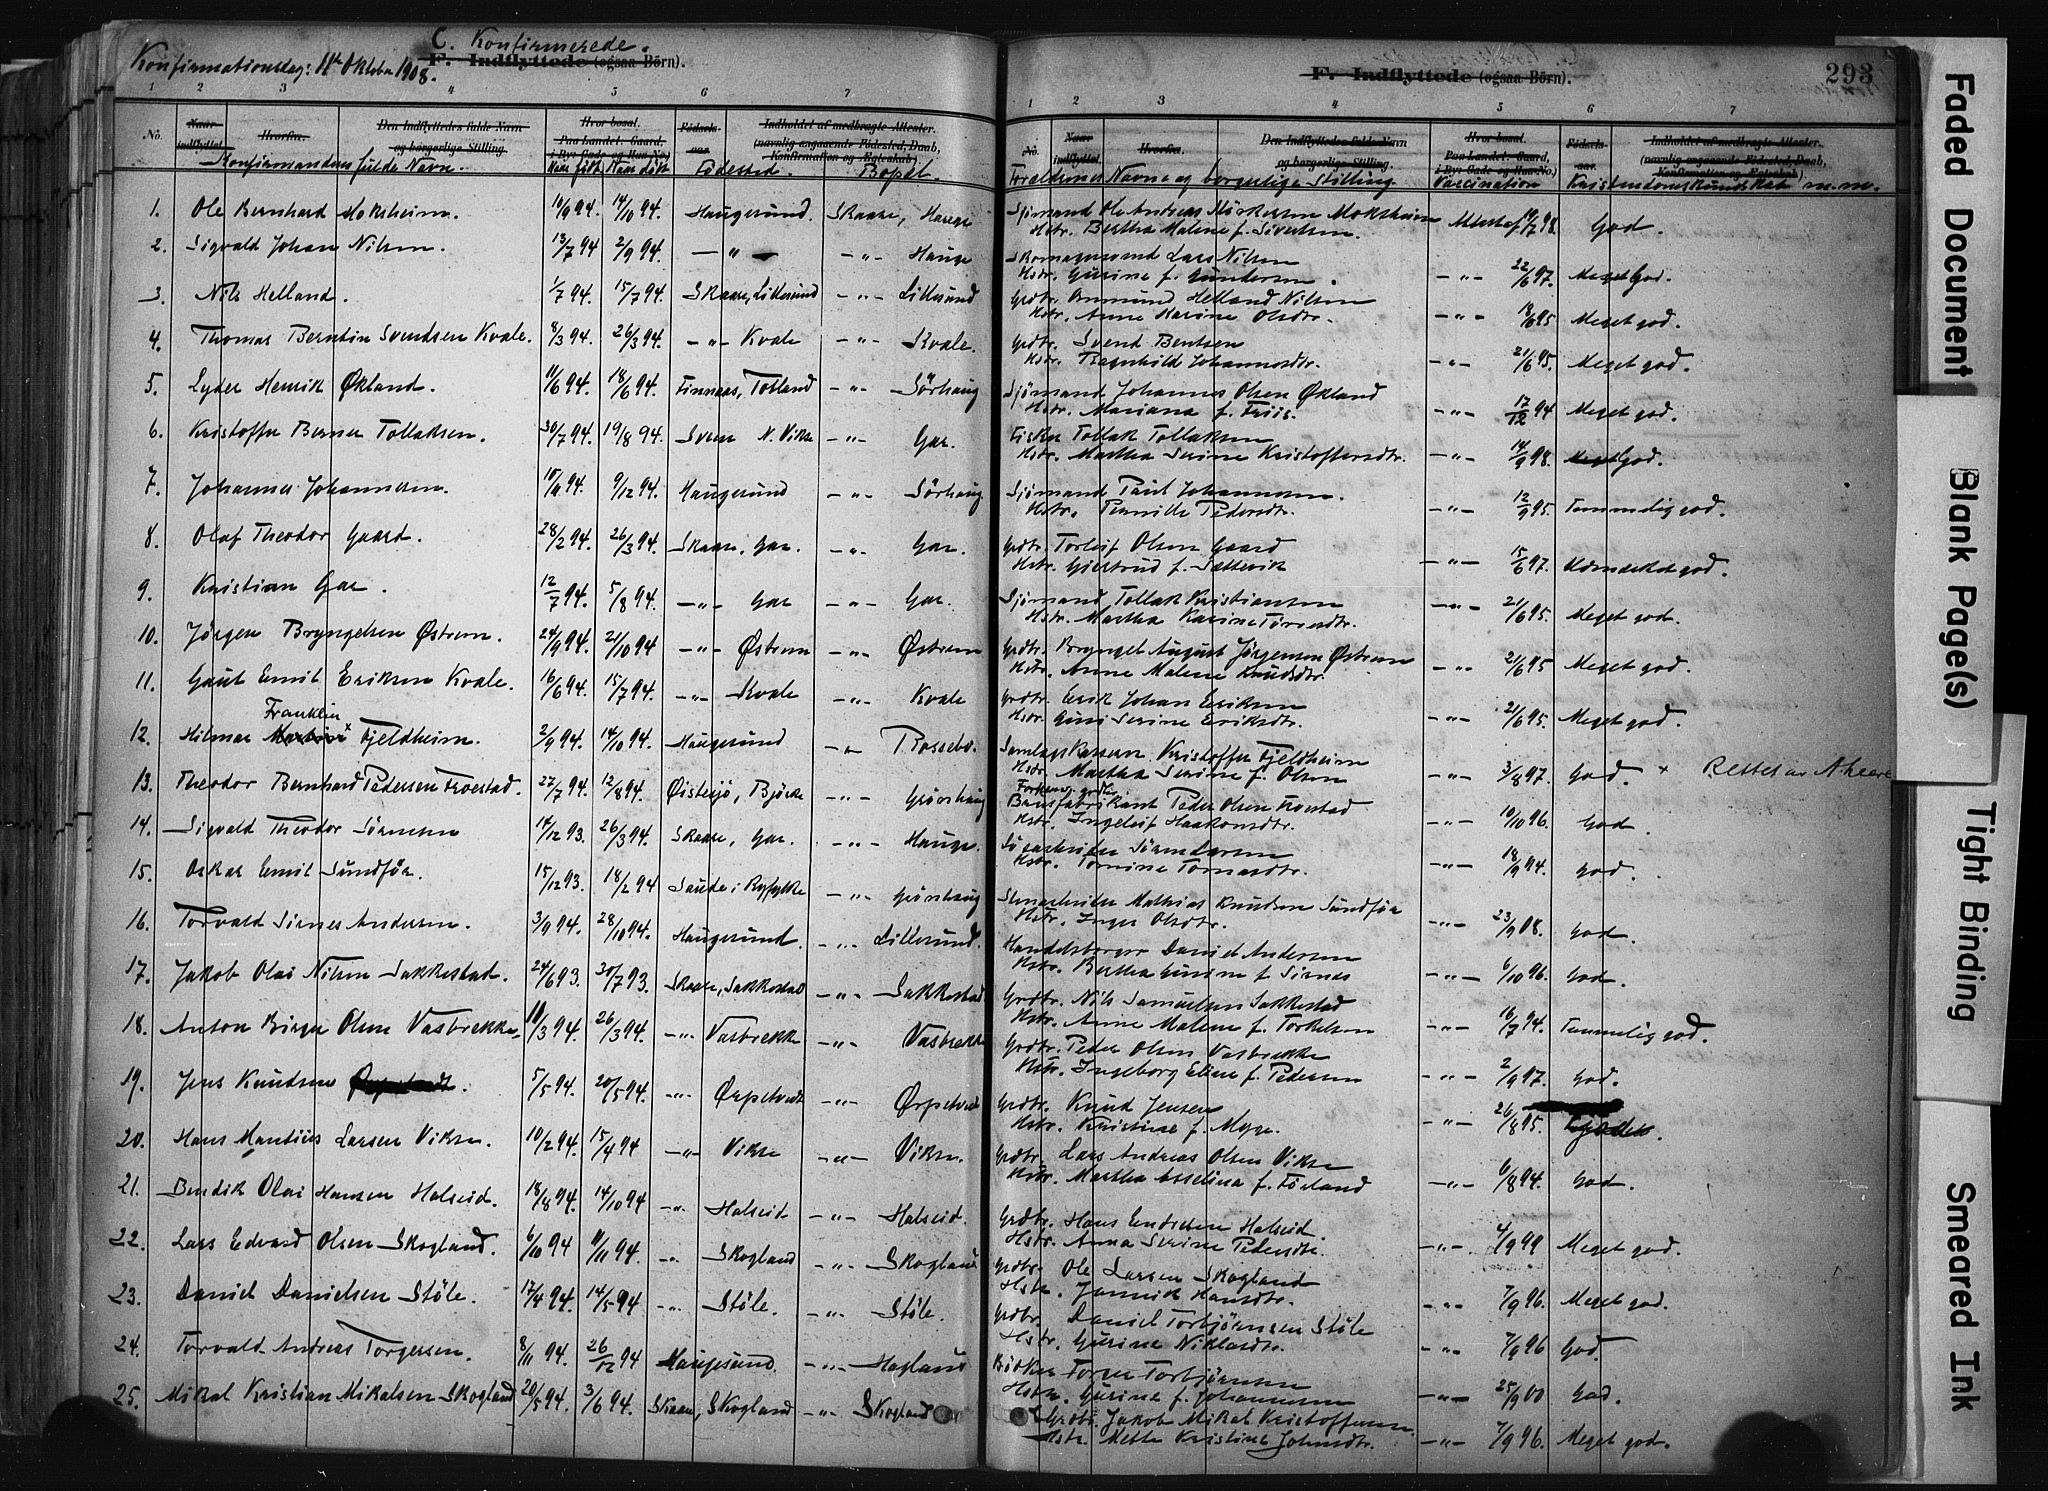 C. Konfirmerede.
Konfirmationsdag: 11te Oktober 1908.
F. Indflyttede (ogsaa Börn).
1 2 3 4 5 6 7
No. Naar indflyttet. Hvorfra. Den Indflyttedes fulde Navn og borgerlige Stilling. Hvor bosat. Paa Landet: Gaard, i By: Gade og Hus-No. Födsels-aar. Indholdet af medbragte Attester. (navnlig angaaende Födested, Daab, Konfirmation og Ægteskab).
Konfirmandens fulde Navn. Naar född Naar döbt Födested. Bopæl.
1. Ole Bernhard Moksheim. 10/9 94. 14/10 94. Haugesund. Skaare, Hauge
2. Sigvald Johan Nilsen. 13/7 94 2/9 94. — " — - " - Hauge
3. Nils Helland. 1/7 94. 15/7 94. Skaare, Lillesund - " - Lillesund
4. Thomas Berntin Svendsen Kvale. 8/3 94. 26/3 94. - " - Kvale - " - Kvale.
5. Lyder Henrik Økland. 11/6 94. 18/6 94. Finnaas, Totland - " - Sörhaug
6. Kristoffer Berner Tollaksen. 30/7 94. 19/8 94. Sveen N. Vikse - " - Gar.
7. Johannes Johannesen. 10/11 94. 9/12 94. Haugesund - " - Sörhaug
8. Olaf Theodor Gaard. 28/2 94. 26/3 94. Skaare, Gar. - " - Gar.
9. Kristian Gar. 12/7 94. 5/8 94. - " - Gar - " - Gar.
10. Jörgen Bryngelsen Østrem. 24/9 94. 21/10 94 - " - Østrem - " - Østrem
11. Gaut Emil Eriksen Kvale. 16/6 94. 15/7 94. - " - Kvale - " - Kvale
Franklin
12. Hilmar x Fjeldheim. 2/9 94. 14/10 94. Haugesund - " - Rossebö.
13. Theodor Bernhard Pedersen Frøestad. 27/7 94. 12/8 94. Øistesjö, Björke - " - Grönhaug
14. Sigvald Theodor Sörensen 14/12 93. 26/3 94. Skaare, Gar. - " - Hauge.
15. Oskar Emil Sundför. 15/12 93. 18/2 94 Saude i Ryfylke - " - Grönhaug
16. Torvald Sirnes Andersen. 3/9 94. 28/10 94. Haugesund. - " - Lillesund.
17. Jakob Olai Nilsen Sakkestad. 24/6 93. 30/7 93. Skaare, Sakkestad - " - Sakkestad
18. Anton Birger Olsen Vasbrekke. 11/3 94. 26/3 94. - " - Vasbrekke - " - Vasbrekke
19. Jens Knudsen 5/5 94. 20/5 94. - " - Ørpetvedt - " - Ørpetvedt
20. Hans Mantius Larsen Vikse. 10/2 94. 15/4 94 - " - Vikse - " - Vikse.
21. Bendik Olai Hansen Halseid. 18/8 94. 14/10 94 - " - Halseid - " - Halseid.
22. Lars Edvard Olsen Skogland. 6/10 94 11/11 94. - " - Skogland - " - Skogland
23. Daniel Danielsen Stöle. 17/4 94. 14/5 94 - " - Stöle. - " - Stöle.
24. Torvald Andreas Torgersen. 8/11 94. 26/12 94 Haugesund. - " - Hagland
25. Mikal Kristian Mikalsen Skogland 20/5 94. 3/6 94. Skaare, Skogland - " - Skogland
F. Indflyttede (ogsaa Börn).
293
1 2 3 4 5 6 7
No. Naar indflyttet. Hvorfra. Den Indflyttedes fulde Navn og borgerlige Stilling. Hvor bosat. Paa Landet: Gaard, i By: Gade og Hus-No.) Födsels-aar. Indholdet af medbragte Attester. (navnlig angaaende Födested, Daab, Konfirmation og Ægteskab).
Forældrenes Navne og borgerlige Stilling. Vaccination Kristendomskundskab m.m.
Sjömand Ole Andreas Moksheim
Hstr. Bertha Malene f. Sivertsen. Attest af 14/7 98. God.
Skomagersvend Lars Nilsen
Hstr. Gurine f. Gundersen. - " - 22/6 97. Meget God.
Grdbr. Amund Helland Nilsen
Hstr. Anne Karine Olsdtr. - " - 18/6 95 Meget god.
Grdbr. Svend Bentsen
Hstr. Ragnhild Johannesdtr. - " - 21/6 95. Meget god.
Sjömand Johannes Olsen Økland
Hstr. Mariana f. Friis. - " - 17/12 94 Meget god.
Fisker Tollak Tollaksen
Hstr. Martha Serine Kristoffersdtr. - " - 14/9 98. Meget God.
Sjömand Paul Johannesen.
Hstr. Pernille Pedersdtr. - " - 12/9 95. Temmelig god.
Grdbr. Torleif Olsen Gaard
Hstr. Gjertrud f. Sættevik - " - 15/6 97. Udmærket god.
Sjömand Tollak Kristiansen
Hstr. Martha Karine Töresdtr. - " - 21/6 95. Meget god.
Grdbr. Bryngel August Jörgensen Østrem
Hstr. Anne Malene Knudsdtr. - " - 21/6 95 Meget god.
Grdbr. Erik Johan Eriksen
Hstr. Guri Serine Eriksdtr. - " - 21/6 95. Meget god.
Samlagskasserer Kristoffer Fjeldheim
Hstr. Martha Serine f. Olsen - " - 3/8 97. God. x Rettet av A. Leere
Baasfabrikant Peder Olsen Frøestad
Hstr. Ingeleif Haakonsdtr. - " - 10/10 96. God.
Sören Larsen
Hstr. Tomine Tomasdtr. - " - 18/9 94. God.
Stenarbeider Mathias Knudsen Sundför
Hstr. Inger Olsdtr. - " - 23/9 08. God.
Handelsborger Daniel Andersen
Hstr. Bertha Gurine f. Sirnes - " - 6/10 96. God.
Grdbr. Nils Samuelsen Sakkestad
Hstr. Anne Malene f. Torkelsen - " - 16/7 94. Temmelig god.
Grdbr. Peder Olsen Vasbrekke
Hstr. Ingeborg Eline f. Pedersen - " - 2/9 97. God.
Grdbr. Knud Jensen
Hstr. Kristine f. Myge. - " - 26/8 95.
Grdbr. Lars Andreas Olsen Vikse
Hstr. Martha Asseline f. Förland - " - 6/8 94. God.
Grdbr. Hans Endresen Halseid.
Hstr. Anna Serine Pedersdtr. - " - 4/9 99 Meget god.
Grdbr. Ole Larsen Skogland
Hstr. Jannik Hansdtr. - " - 7/9 96. Meget god.
Grdbr. Daniel Torbjörnsen Stöle
Hstr. Gurine Niklasdtr. - " - 7/9 96 God.
Bödker Torger Torbjörnsen
Hstr. Gurine f. Johannesen - " - 25/9 00 God.
Grdbr. Jakob Mikal Kristoffersen
Hstr. Mette Kristine Johnsdtr. - " - 7/9 96. Meget god.
Faded Document
Blank Page(s)
Tight Binding
Smeared Ink